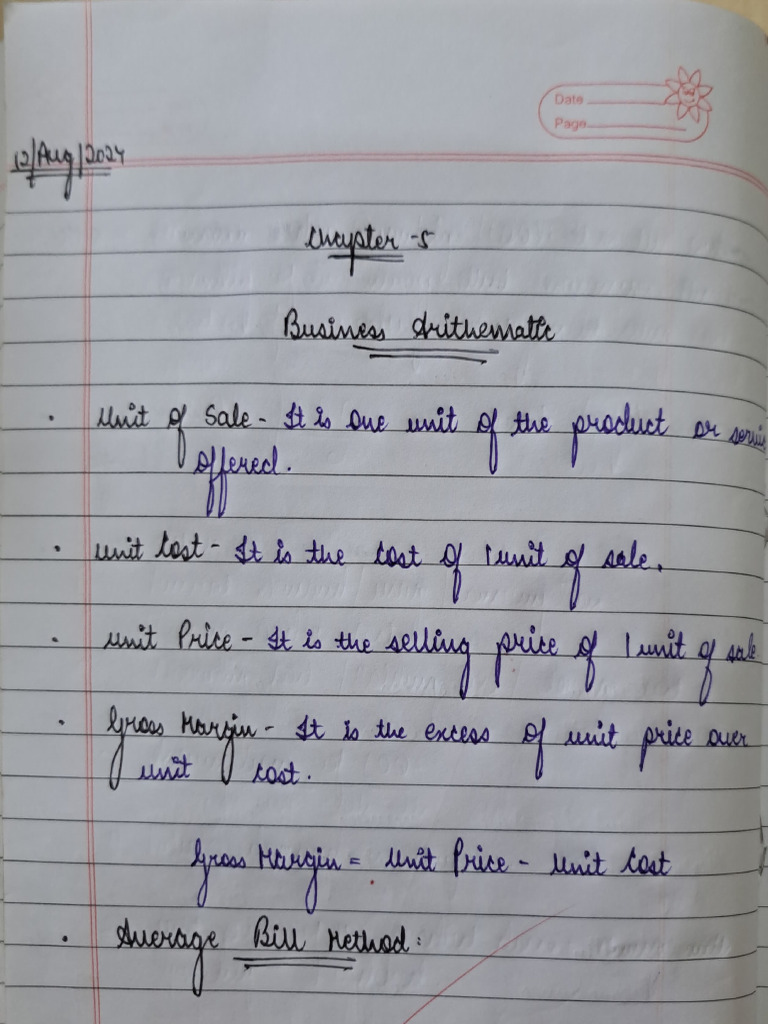 Date
Page
12/Aug/2024
Chapter - 5
Business Arithematic
• Unit of Sale - It is one unit of the product or servic
offered.
• Unit Cost - It is the cost of 1 unit of sale.
• Unit Price - It is the selling price of 1 unit of sale
• Gross Margin - It is the excess of unit price over
unit cost.
Gross Margin = Unit Price - Unit Cost
• Average Bill Method :